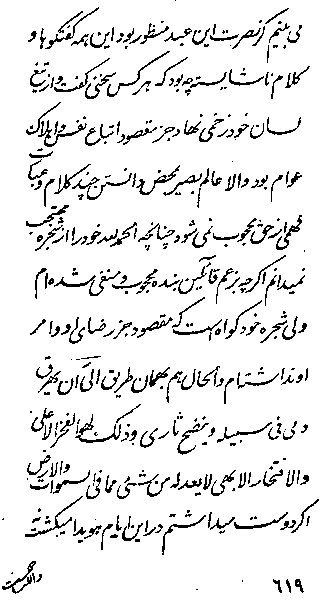 می بینم گر نصرت این عبد منظور بود این همه گفتگوها و
کلام ناشایسته چه بود که هر کس سخنی گفت و از تیغ
لسان خود زخمی نهاد جز مقصود اتباع نفس و اهلاک
عوام بود والا عالم بصیر بمحض دانستن چند کلام و عبارت
فهمی از حق محجوب نمی شود چنانچه الحمد لله خود را از شجره محتجب
نمیدانم اگرچه بزعم قائلین بنده محجوب و منفی شده ام
ولی شجره خود گواه است که مقصود جز رضای او و امر
او نداشته ام والحال هم بهمان طریق الی ان یهرق
دمی فی سبیله و ینضح ثاری و ذلک لهو الفخر الاعلی
والافتخار الابهی لا یعد له من شئ عما فی السموات والارض
اگر دوست میداشتم در این ایام هویدا میگشت نه
والکن
٦١٩